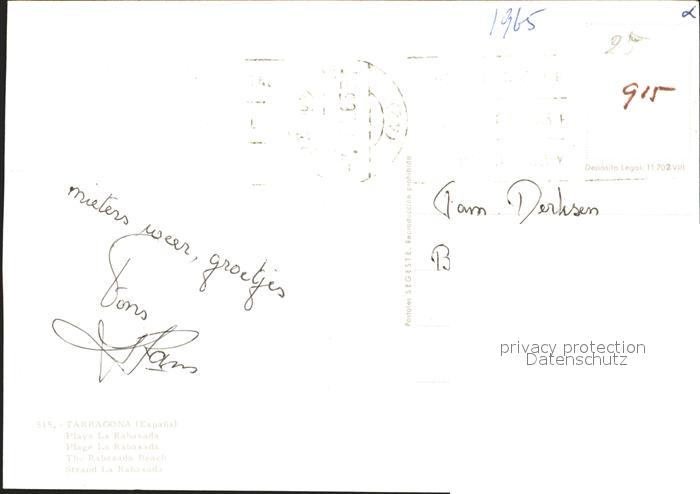 1965
25
915
Depósito Legal: 11.702 VIII
mieters weer, groetjes
Tons
Hans
Postales SEGESTE. Reproducción prohibida
Fam. Derksen
B
privacy protection
Datenschutz
515. - TARRAGONA (España)
Playa La Rabasada
Plage La Rabasada
The Rabasada Beach
Strand La Rabasada